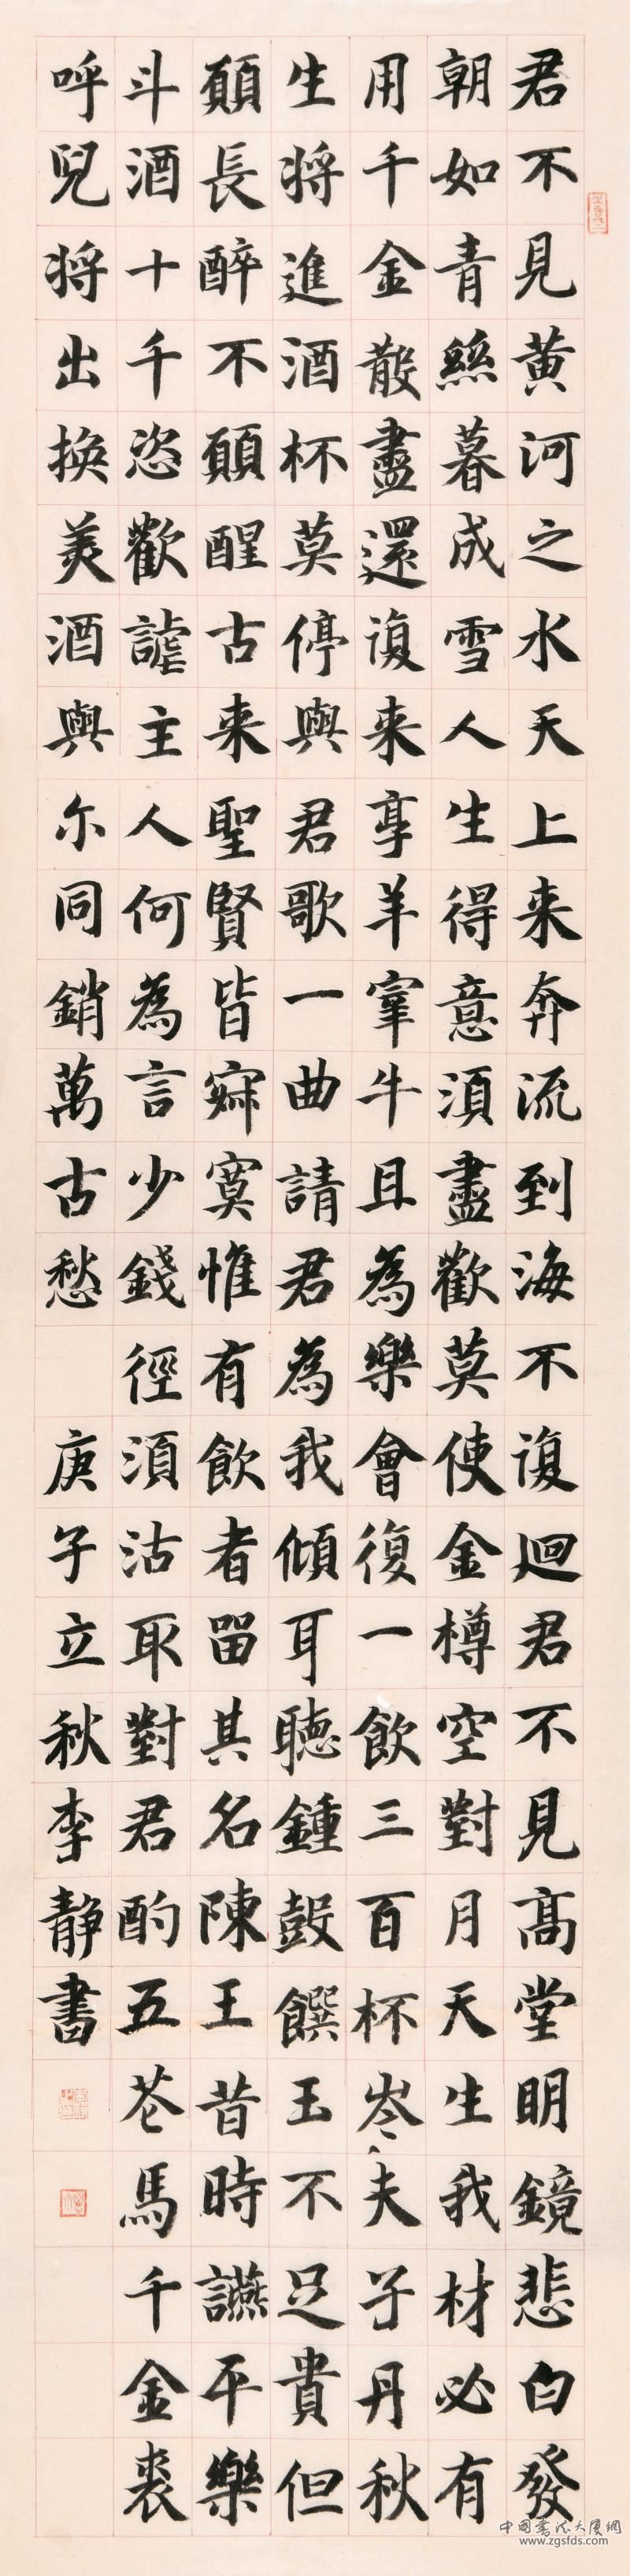 君不見黄河之水天上来奔流到海不復迴君不見高堂明鏡悲白發
朝如青絲暮成雪人生得意須盡歡莫使金樽空對月天生我材必有
用千金散盡還復来享羊宰牛且為樂會復一飲三百杯岑夫子丹秋
生將進酒杯莫停與君歌一曲請君為我傾耳聽鍾鼓饌玉不足貴但
願長醉不願醒古来聖賢皆寂寞惟有飲者留其名陳王昔時讌平樂
斗酒十千恣歡謔主人何為言少錢徑須沽取對君酌五花馬千金裘
呼兒將出換美酒與尓同銷萬古愁
庚子立秋李静書
中国书法大厦網
www.zgsfds.com